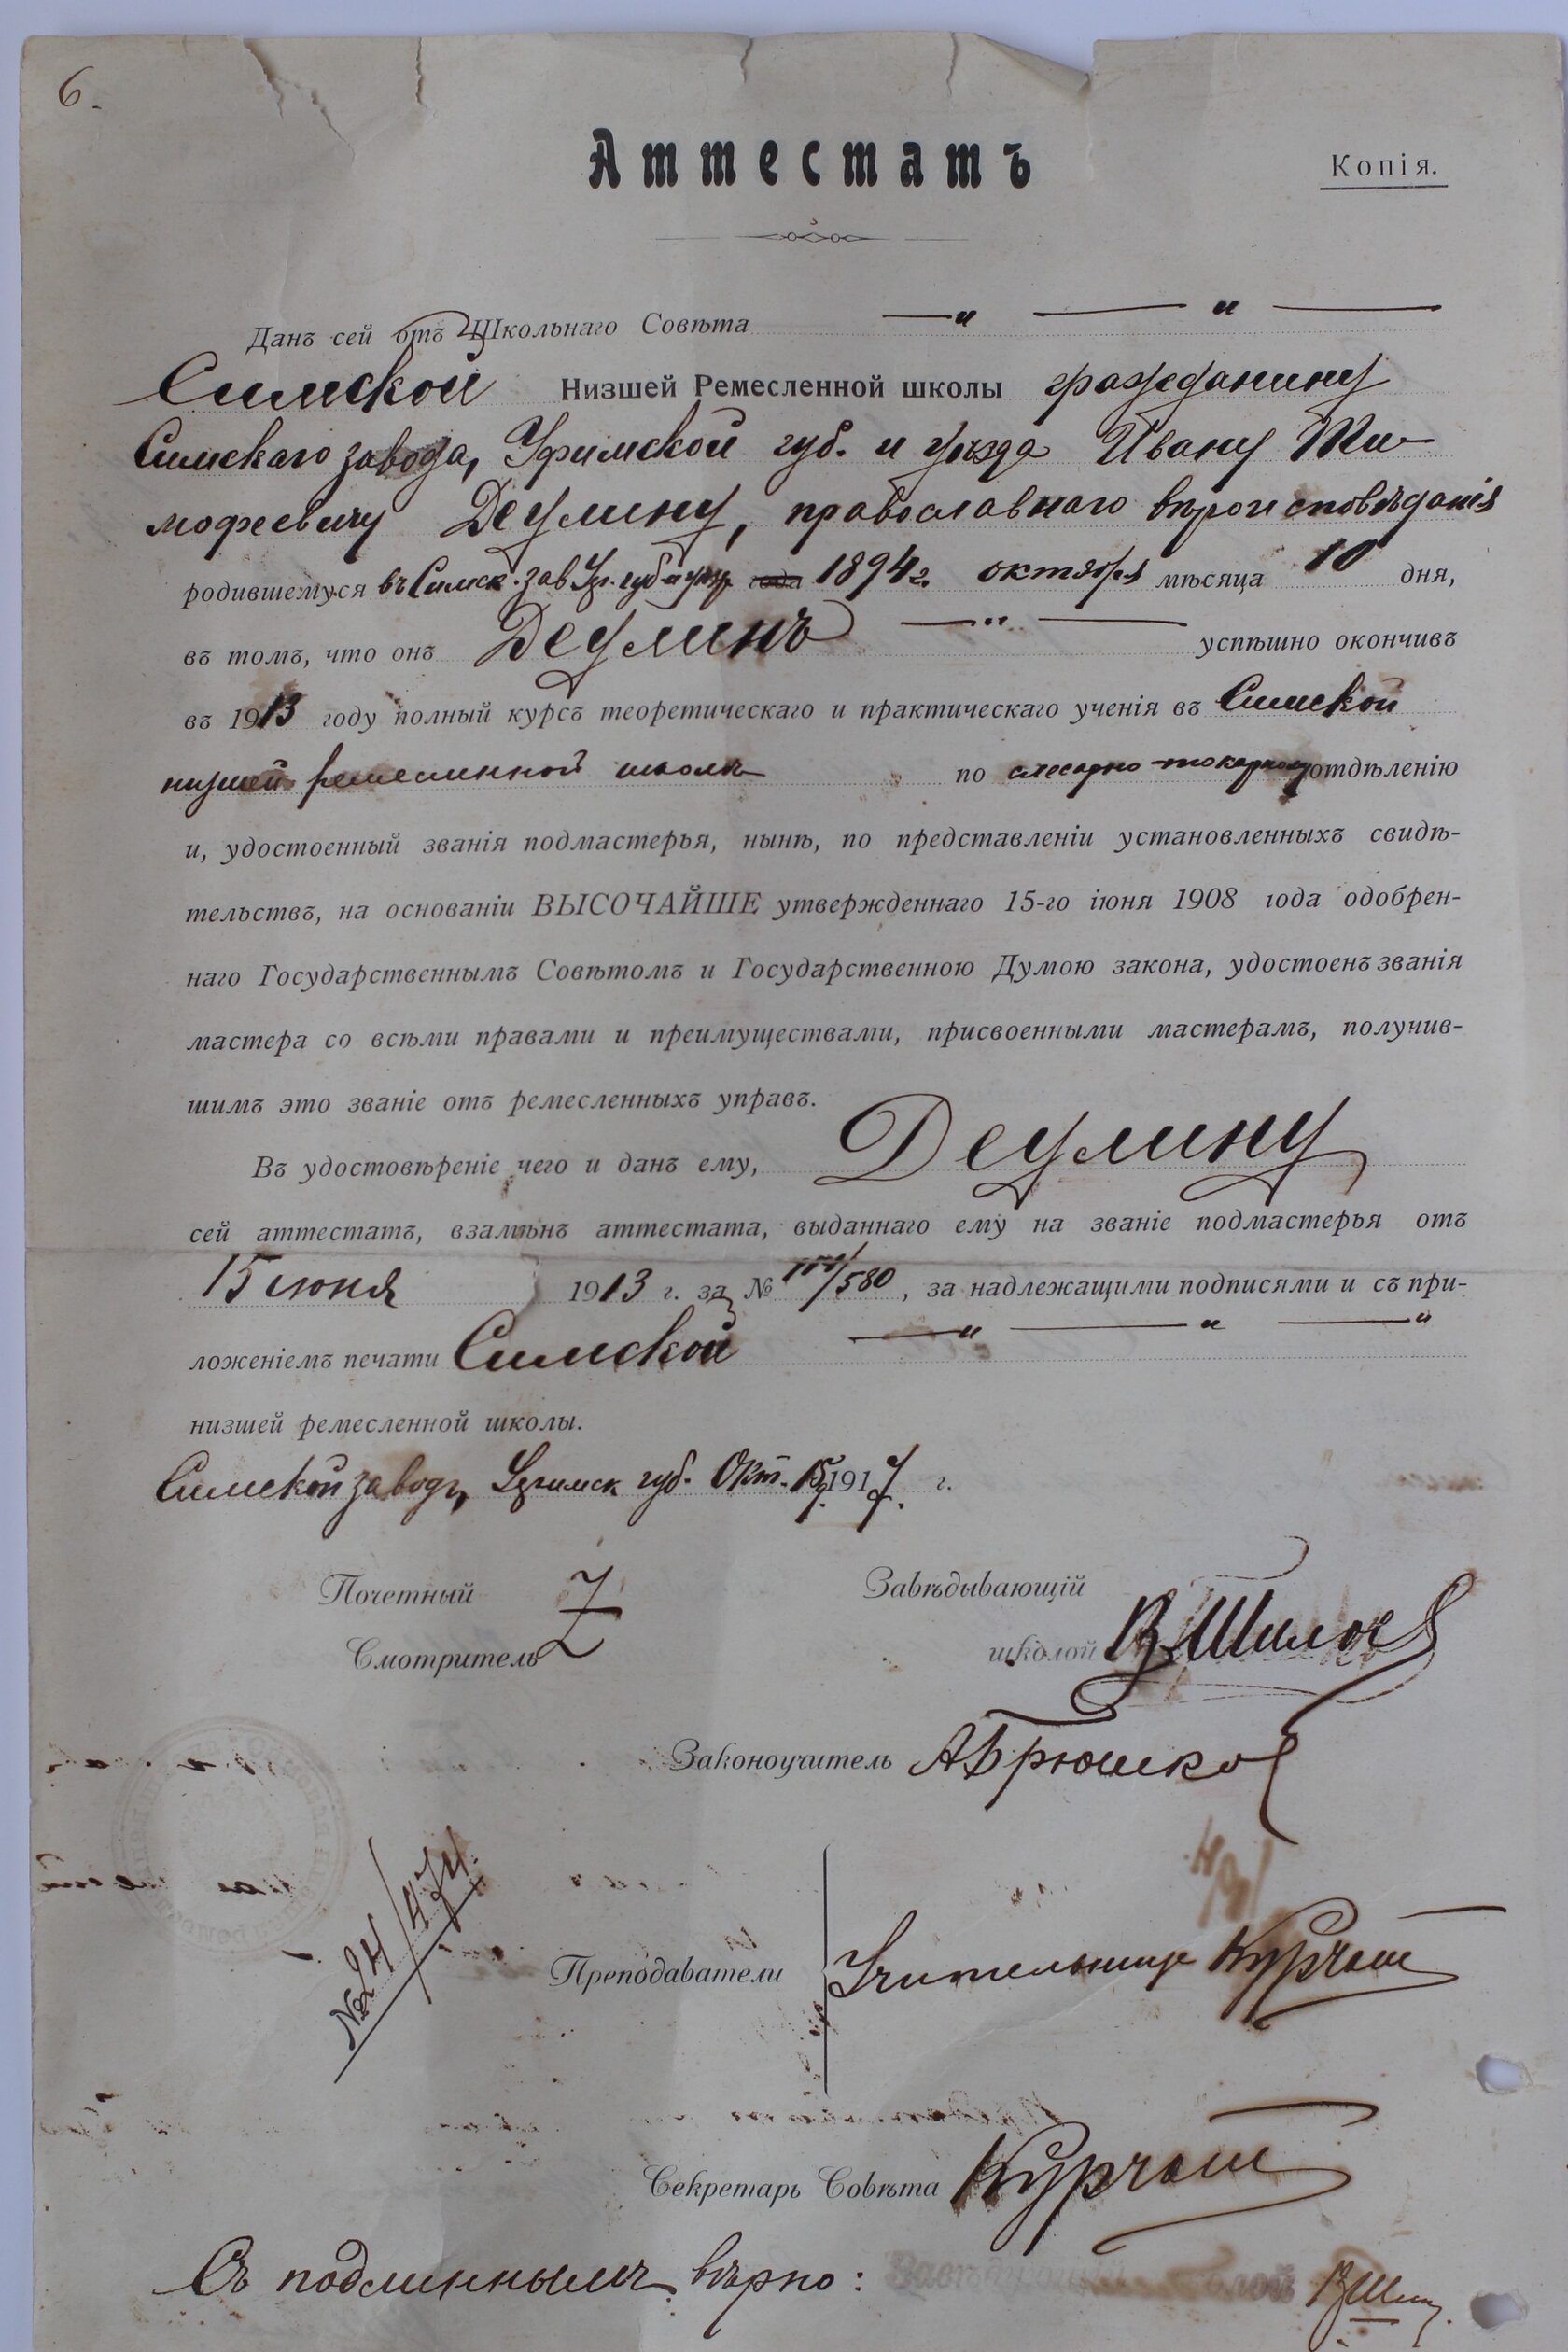 6.
Аттестатъ
Копія.
Данъ сей отъ Школьнаго Совѣта — " — " —
Симской Низшей Ремесленной школы гражданину
Симскаго завода, Уфимской губ. и уѣзда Ивану Ти-
мофеевичу Деулину, православнаго вѣроисповѣданія
родившемуся въ Симск. зав. Уф. губ. и уѣз. года 1894 г. октября мѣсяца 10 дня,
въ томъ, что онъ Деулинъ — " — успѣшно окончивъ
въ 1913 году полный курсъ теоретическаго и практическаго ученія въ Симской
низшей ремесленной школѣ по слесарно-токарному отдѣленію
и, удостоенный званія подмастерья, нынѣ, по представленіи установленныхъ свидѣ-
тельствъ, на основаніи ВЫСОЧАЙШЕ утвержденнаго 15-го іюня 1908 года одобрен-
наго Государственнымъ Совѣтомъ и Государственною Думою закона, удостоенъ званія
мастера со всѣми правами и преимуществами, присвоенными мастерамъ, получив-
шимъ это званіе отъ ремесленныхъ управъ.
Въ удостовѣреніе чего и данъ ему, Деулину
сей аттестатъ, взамѣнъ аттестата, выданнаго ему на званіе подмастерья отъ
15 іюня 1913 г. за № /580, за надлежащими подписями и съ при-
ложеніемъ печати Симской — " — " — "
низшей ремесленной школы.
Симской заводъ, Уфимск губ. Окт. 15 1917 г.
Почетный Завѣдывающій
Смотритель школой В Шилов
Законоучитель А Брюшков
№ 24/474.
Преподаватели Учительница Курчат
Секретарь Совѣта Курчат
Съ подлиннымъ вѣрно: В Шил